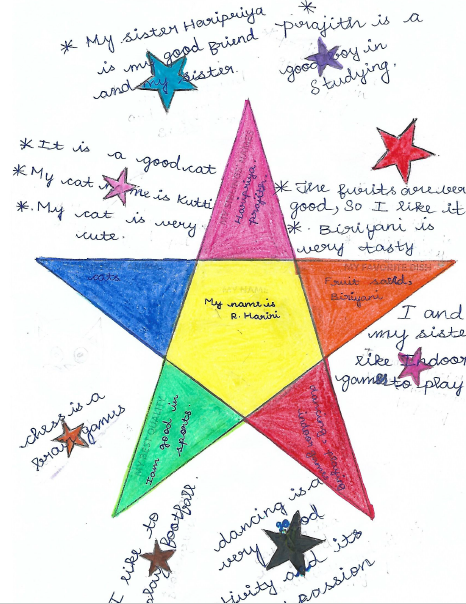 * My sister Haripriya
is my good friend
and my sister.
* prajith is a
good boy in
Studying.
* It is a good cat
* My cat name is Kutti
*. My cat is very
cute.
* The furits are ver
good, So I like it
*. Biriyani is
very tasty
Haripriya
prajith
cats
MY NAME
My name is
R. Harini
MY FAVORITE DISH
Fruit salad,
Biriyani
I and
my siste
like Indoor
games to play
chess is a
brain games
MY BEST QUALITY
I am good in
sports.
dancing
I like to
play football.
dancing is a
very good
tivity and its
passion